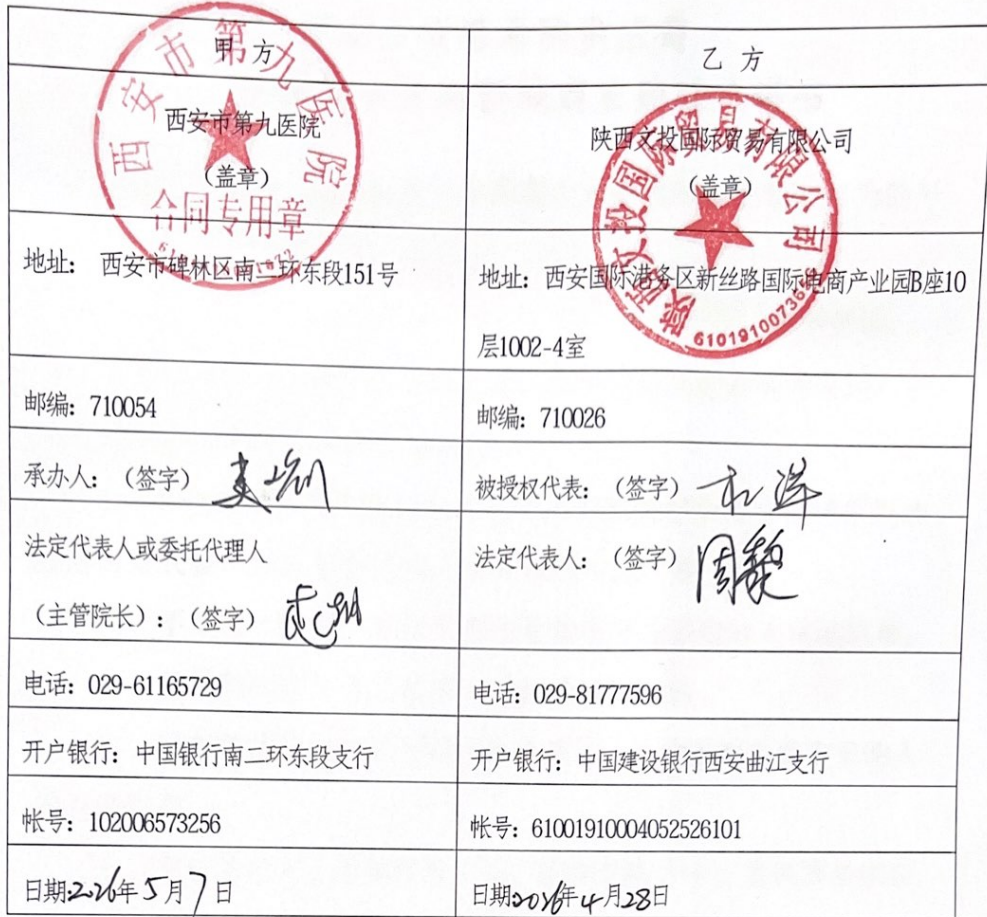 甲 方
乙 方
西安市第九医院
(盖章)
陕西文投国际贸易有限公司
(盖章)
西安市第九医院
合同专用章
陕西文投国际贸易有限公司
地址： 西安市碑林区南二环东段151号
地址：西安国际港务区新丝路国际电商产业园B座10
层1002-4室
邮编：710054
邮编：710026
承办人：（签字）
被授权代表：（签字）
法定代表人或委托代理人
（主管院长）：（签字）
法定代表人：（签字）
电话：029-61165729
电话：029-81777596
开户银行：中国银行南二环东段支行
开户银行：中国建设银行西安曲江支行
帐号：102006573256
帐号：61001910004052526101
日期2026年5月7日
日期2026年4月28日